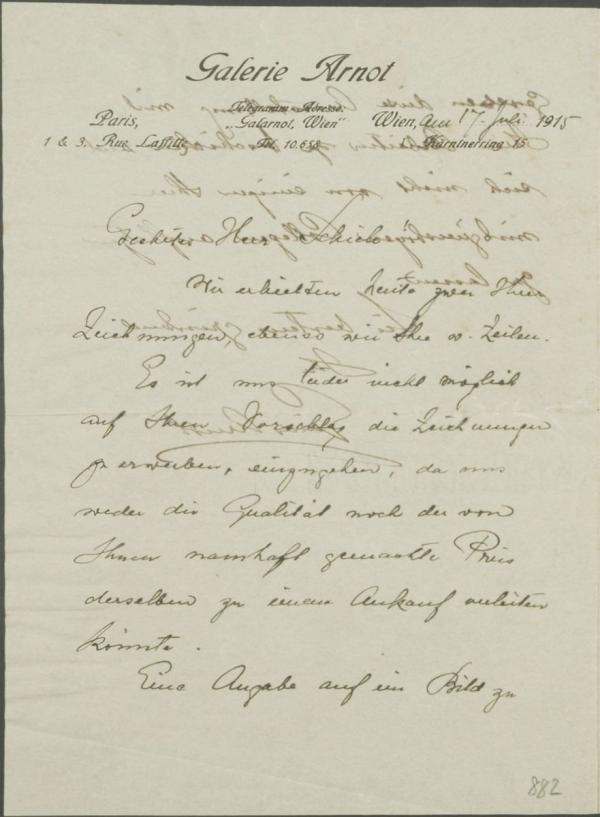 Galerie Arnot
Telegramm-Adresse:
Paris, „Galarnot, Wien“ Wien, am 17. Juli 1915
1 & 3. Rue Laffitte Tel. 10.658 Kärntnerring 15
Geehrter Herr Schiele!
Wir erhielten heute zwei Ihrer
Zeichnungen, ebenso wie Ihre w. Zeilen.
Es ist uns leider nicht möglich
auf Ihren Vorschlag die Zeichnungen
zu erwerben, einzugehen, da uns
weder die Qualität noch der von
Ihnen namhaft gemachte Preis
derselben zu einem Ankauf verleiten
könnte.
Eine Angabe auf ein Bild zu
882